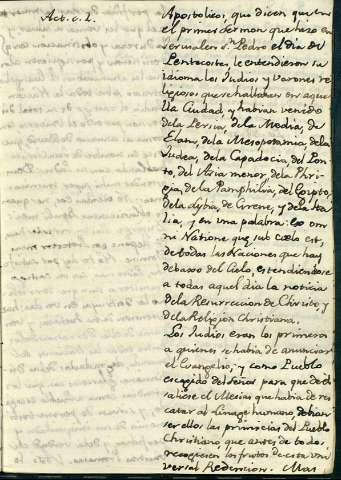 Act. c. 2.
Apostolicos, que dicen que en
el primer Sermon que hizo en
Jerusalen Sn. Pedro el dia de
Pentecostes, le entendieron su
idioma los Judios y varones re-
ligiosos que se hallaron en aque-
lla Ciudad, y habian venido
de la Persia, de la Media, de
Elam, de la Mesopotamia, de la
Judea, de la Capadocia, del Pon-
to, del Asia menor, de la Phri-
gia, de la Pamphilia, del Egipto,
de la Lybia, de Cirene, y de la Ita-
lia, y en una palabra: ex om-
ni Natione quæ sub cœlo est,
de todas las Naciones que hay
debaxo del Cielo, estendiendose
a todas aquel dia la noticia
de la Resurreccion de Christo, y
de la Religion Christiana.
Los Judios eran los primeros
a quienes se habia de anunciar
el Evangelio, y como Pueblo
escogido del Señor para que de él
saliese el Mesias que habia de res-
catar al linage humano, debian
ser ellos las primicias del Pueblo
Christiano que antes de todos
recogiesen los frutos de esta uni-
versal Redencion. Mas